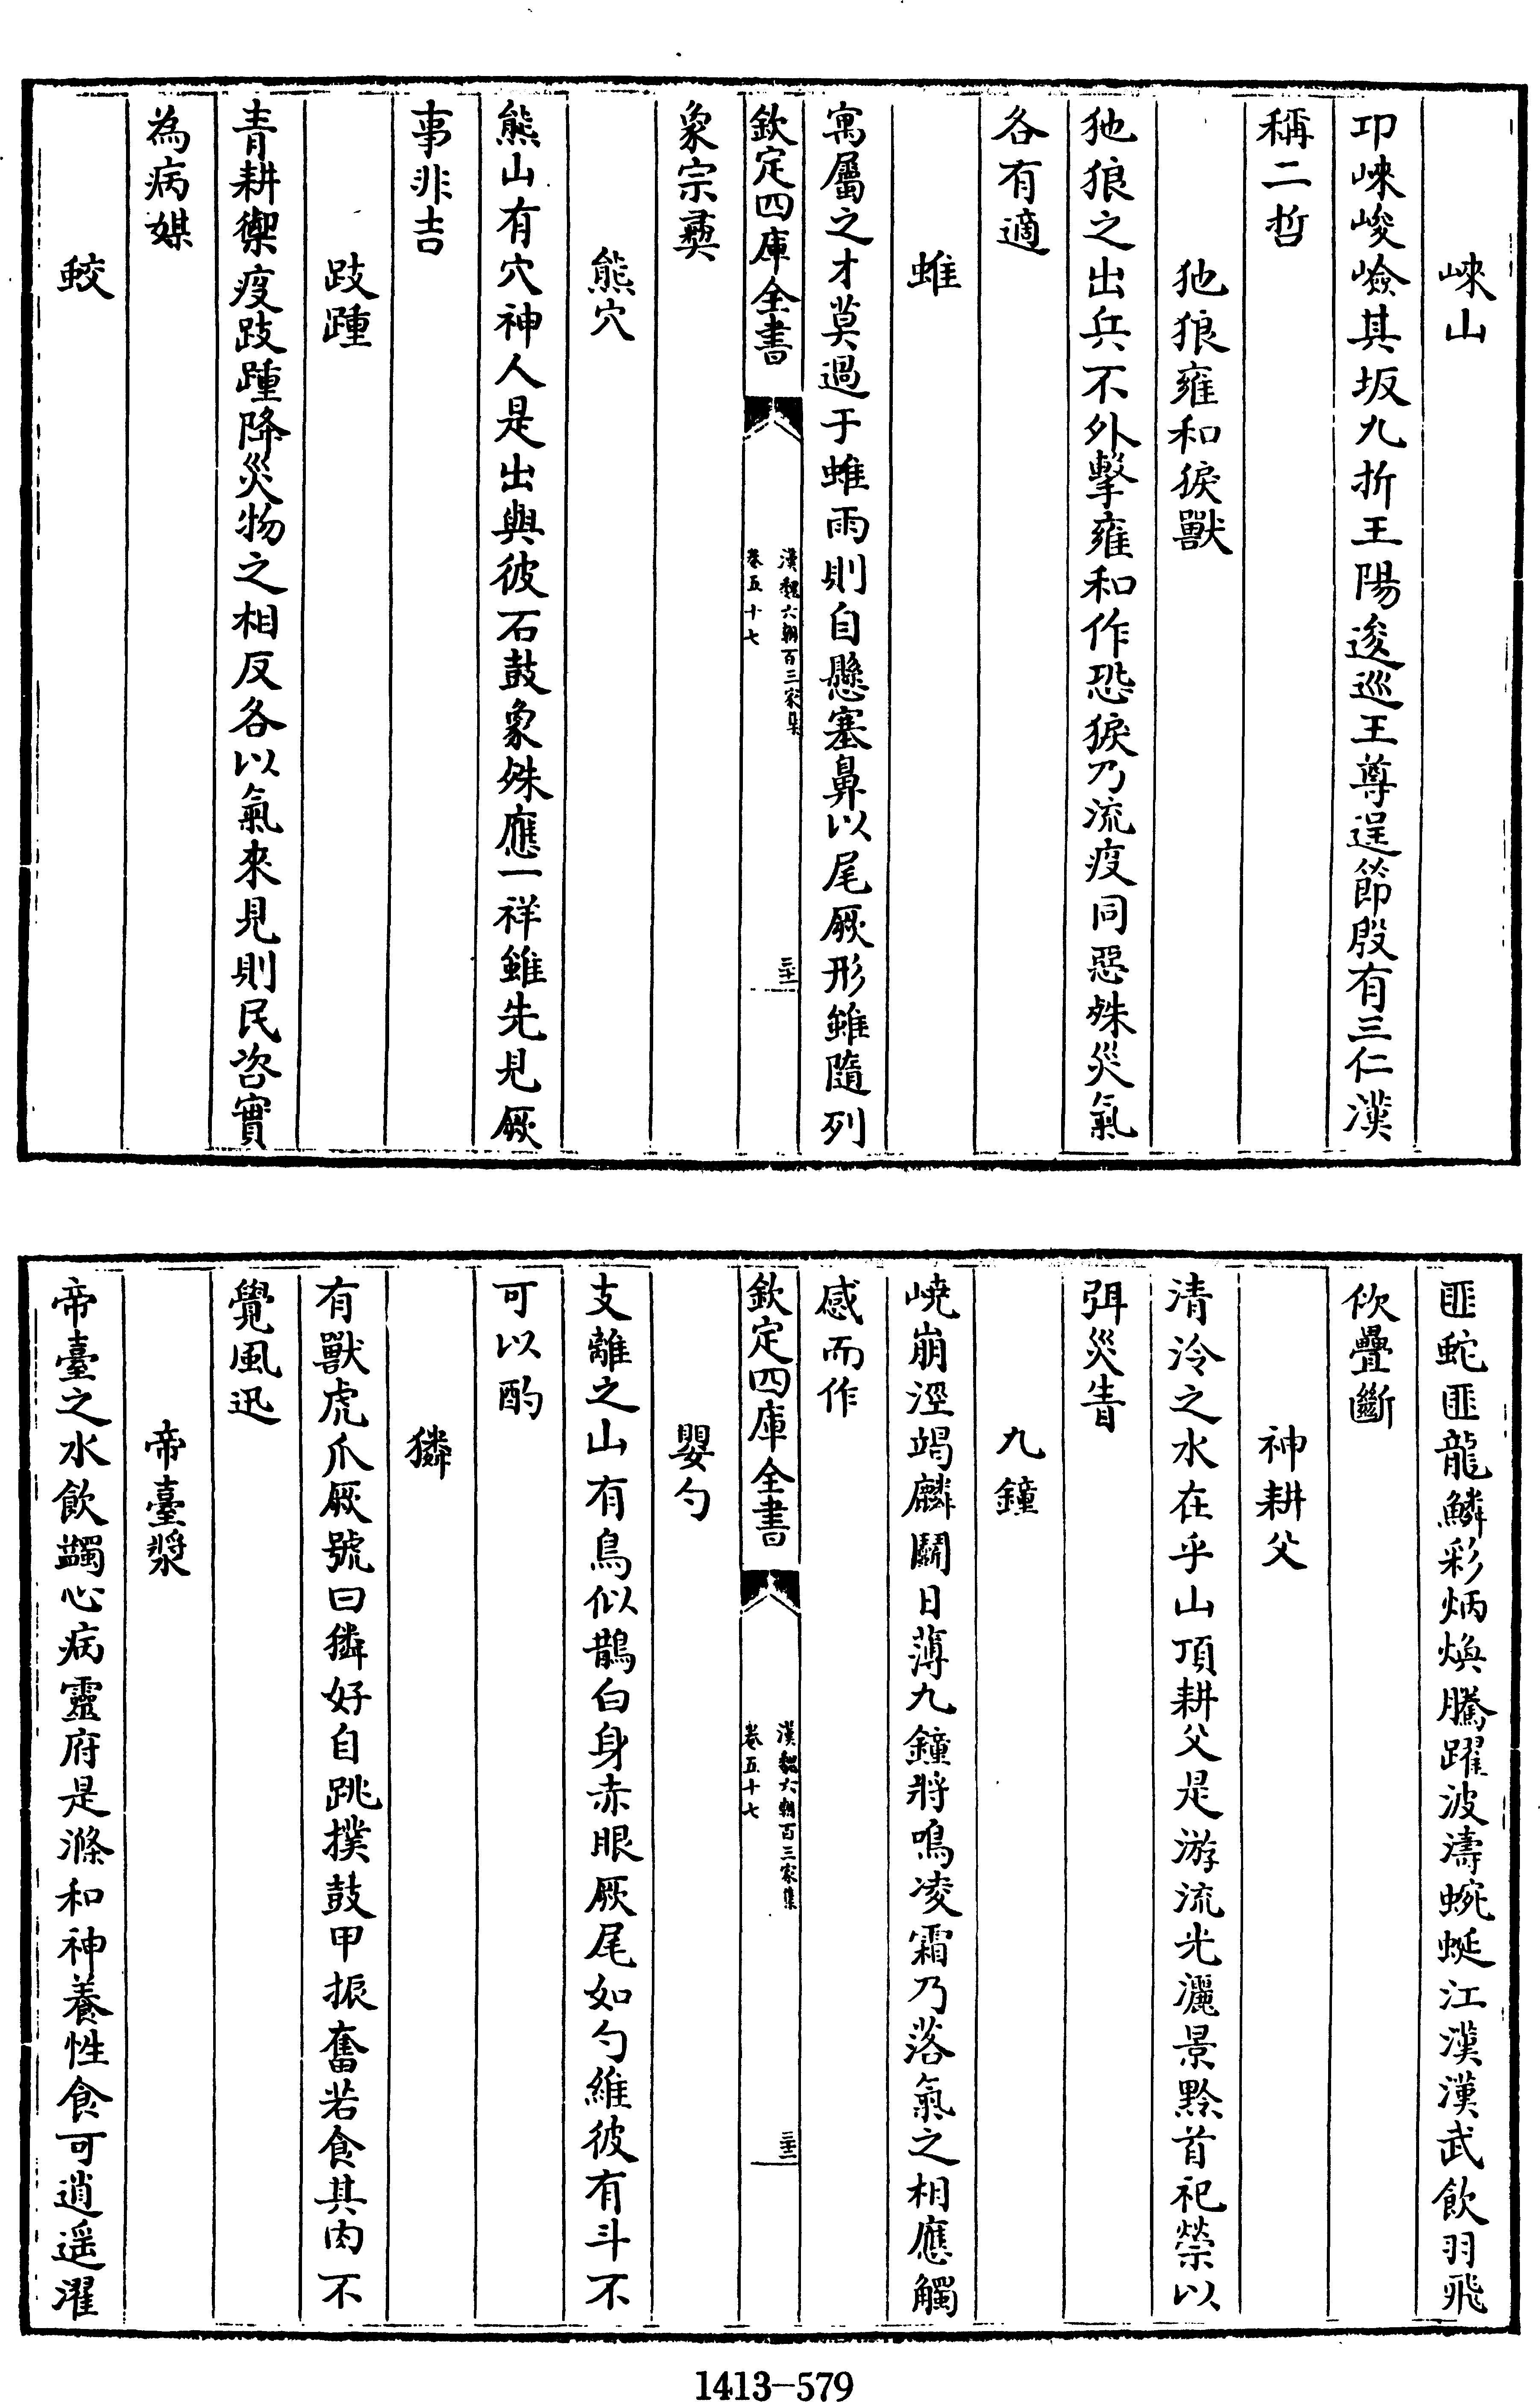 崍山
邛崍峻嶮其坂九折王陽逡巡王尊逞節殷有三仁漢
稱二哲
狏狼雍和㺉獸
狏狼之出兵不外擊雍和作恐㺉乃流疫同惡殊災氣
各有適
蜼
寓屬之才莫過于蜼雨則自懸塞鼻以尾厥形雖隨列
象宗彞
欽定四庫全書
漢魏六朝百三家集
卷五十七
三十一
熊穴
熊山有穴神人是出與彼石鼓象殊應一祥雖先見厥
事非吉
跂踵
青耕禦疫跂踵降災物之相反各以氣來見則民咨實
為病媒
蛟
匪蛇匪龍鱗彩炳煥騰躍波濤蜿蜒江漢漢武飲羽飛
佽疊斷
神耕父
清泠之水在乎山頂耕父是游流光灑景黔首祀禜以
弭災眚
九鐘
嶢崩涇竭麟鬭日薄九鐘將鳴凌霜乃落氣之相應觸
感而作
欽定四庫全書
漢魏六朝百三家集
卷五十七
三十二
嬰勺
支離之山有鳥似鵲白身赤眼厥尾如勺維彼有斗不
可以酌
獜
有獸虎爪厥號曰獜好自跳撲鼓甲振奮若食其肉不
覺風迅
帝臺漿
帝臺之水飲蠲心病靈府是滌和神養性食可逍遥濯
1413-579